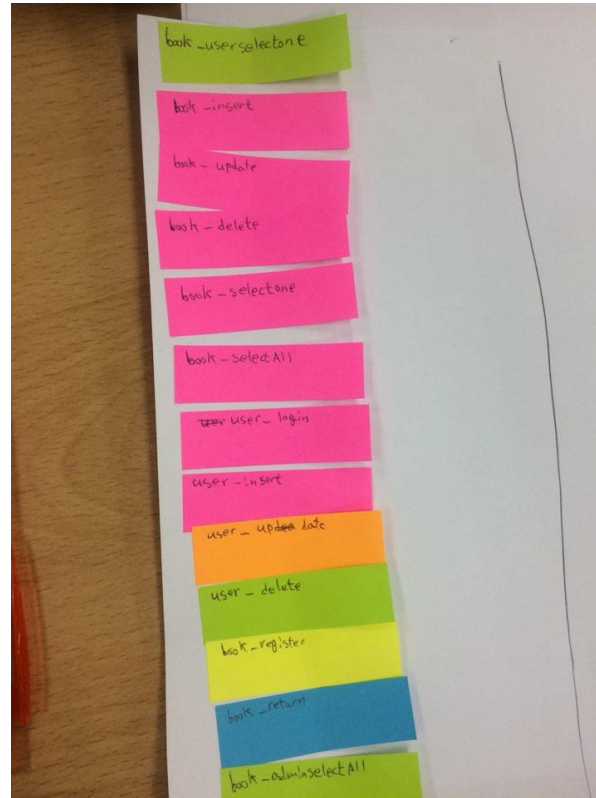 book_userselectone
book_insert
book_update
book_delete
book_selectone
book_selectAll
user_login
user_insert
user_update
user_delete
book_register
book_return
book_adminselectAll